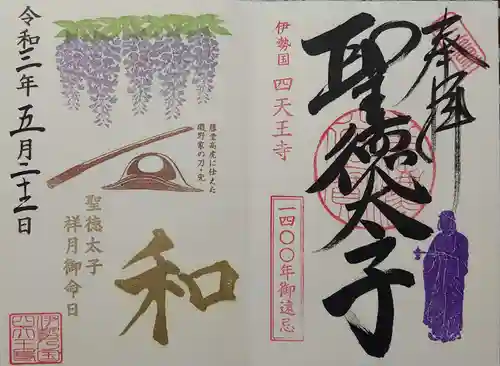 奉拝
聖徳太子
伊勢国 四天王寺
一四〇〇年御遠忌
藤堂高虎に仕えた
磯野家の刀・兜
和
聖徳太子
祥月御命日
令和三年五月二十二日